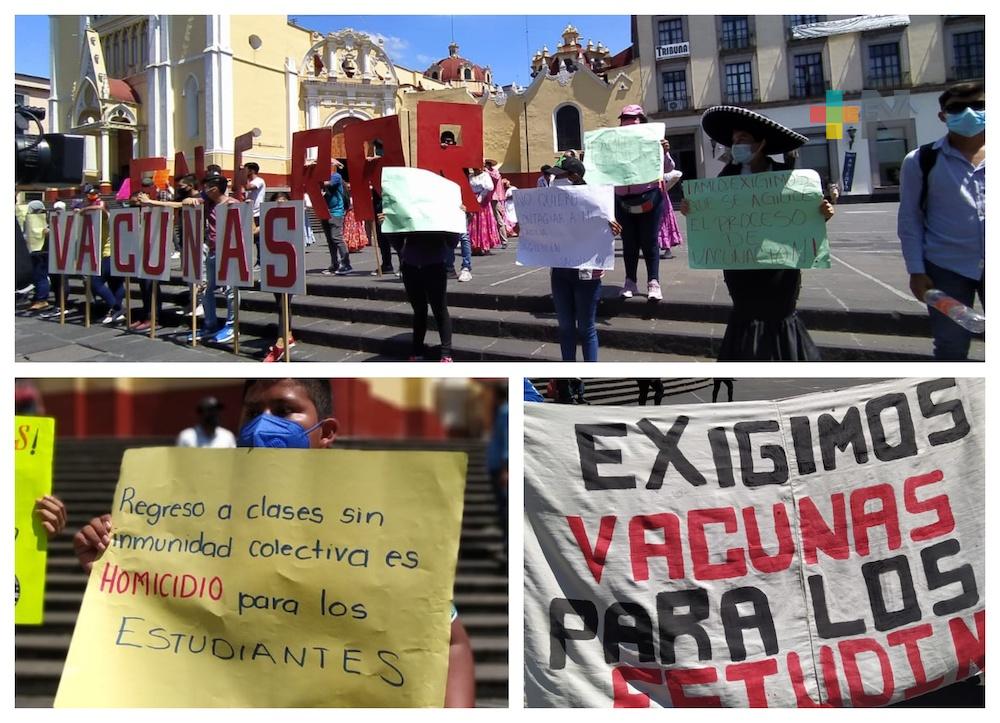 TRIBUNA
VACUNAS
NO QUIERO
CONTAGIAR A MI
AMLO EXIGIMOS
QUE SE AGILICE
EL PROCESO
DE
VACUNACIÓN!
S!
Regreso a clases sin
inmunidad colectiva es
HOMICIDIO para los
ESTUDIANTES
EXIGIMOS
VACUNAS
PARA LOS
ESTUDIAN